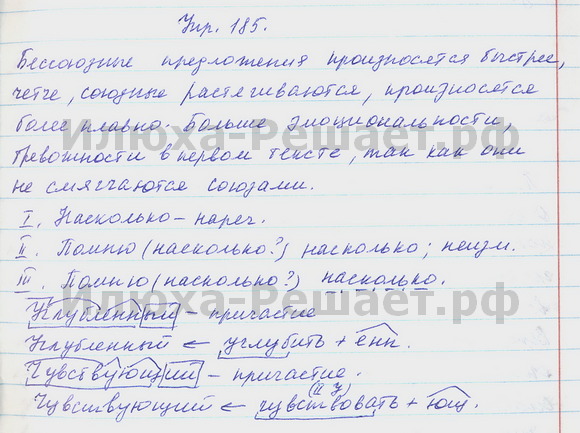 Упр. 185.
Бессоюзные предложения произносятся быстрее,
четче, союзные растягиваются, произносятся
более плавно. Больше эмоциональности,
тревожности в первом тексте, так как они
не смягчаются союзами.
I. Насколько – нареч.
II. Помню (насколько?) насколько; неизм.
III. Помню (насколько?) насколько.
Углубленный – причастие
Углубленный ← углубить + енн.
Чувствующий – причастие.
(II у)
Чувствующий ← чувствовать + ющ.
Илюха-Решает.рф
Илюха-Решает.рф